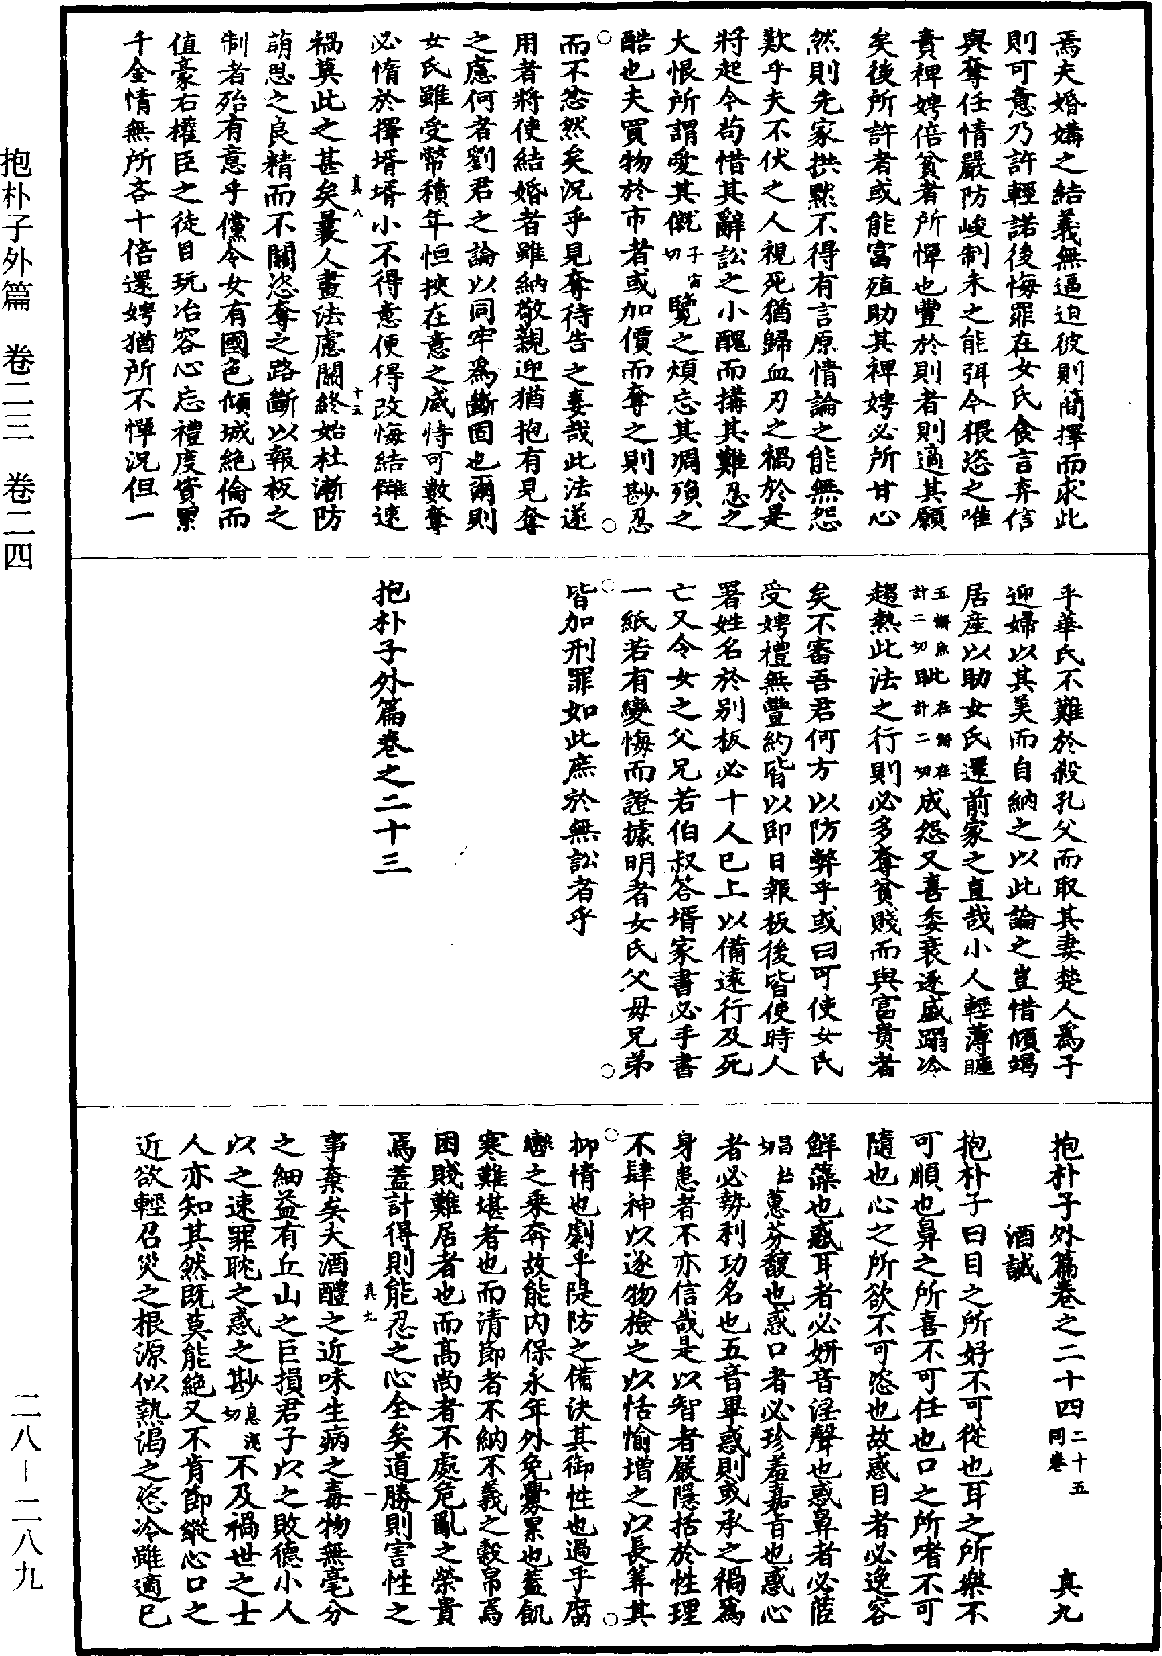 焉夫婚媾之結義無逼迫彼則簡擇而求此
則可意乃許輕諾後悔罪在女氏食言弃信
與奪任情嚴防峻制未之能弭今猥恣之唯
責裨娉倍貧者所憚也豐於則者則適其願
矣後所許者或能富殖助其裨娉必所甘心
然則先家拱默不得有言原情論之能無怨
歎乎夫不伏之人視死猶歸血刃之禍於是
將起今苟惜其辭訟之小醜而搆其難忍之
大恨所謂愛其慨切覽之煩忘其凋殞之
酷也夫買物於市者或加價而奪之則尠忍
而不忿然矣況乎見奪待告之妻哉此法遂
用者將使結婚者雖納敬親迎猶抱有見奪
之慮何者劉君之論以同牢爲斷固也爾則
女氏雖受幣積年恒挾在意之威恃可數奪
必惰於擇壻壻小不得意便得改悔結讎速
真八
十五
禍莫此之甚矣曩人畫法慮關終始杜漸防
萌思之良精而不關恣奪之路斷以報板之
制者殆有意乎儻令女有國色傾城絕倫而
值豪右權臣之徒目玩冶容心忘禮度資累
千金情無所吝十倍還娉猶所不憚況但一
乎華氏不難於殺孔父而取其妻楚人爲子
迎婦以其美而自納之以此論之豈惜傾竭
居產以助女氏還前家之直哉小人輕薄睚
五懈反眦在詣在計二切成怨又喜委衰逐盛蹋冷
趨熱此法之行則必多奪貧賤而與富貴者
矣不審吾君何方以防弊乎或曰可使女氏
受娉禮無豐約皆以即日報板後皆使時人
署姓名於別板必十人已上以備遠行及死
亡又令女之父兄若伯叔答壻家書必手書
一紙若有變悔而證據明者女氏父母兄弟
皆加刑罪如此庶於無訟者乎
抱朴子外篇卷之二十三
抱朴子外篇卷之二十四二十五同卷 真九
酒誡
抱朴子曰目之所好不可從也耳之所樂不
可順也鼻之所喜不可任也口之所嗜不可
隨也心之所欲不可恣也故惑目者必逸容
鮮藻也惑耳者必妍音淫聲也惑鼻者必茝
昌紿切蕙芬馥也惑口者必珍羞嘉旨也惑心
者必勢利功名也五音畢惑則或承之禍爲
身患者不亦信哉是以智者嚴隱括於性理
不肆神以逐物檢之以恬愉增之以長筭其
抑情也劇乎隄防之備決其御性也過乎腐
轡之乘奔故能內保永年外免釁累也蓋飢
寒難堪者也而清節者不納不義之穀帛焉
困賤難居者也而高尚者不處危亂之榮貴
焉蓋計得則能忍之心全矣道勝則害性之
真九
一
事棄矣夫酒醴之近味生病之毒物無毫分
之細益有丘山之巨損君子以之敗德小人
以之速罪耽之惑之尠息淺切不及禍世之士
人亦知其然既莫能絕又不肯節縱心口之
近欲輕召災之根源似熱渴之恣冷雖適已
抱朴子外篇　卷二三　卷二四
二八—二八九